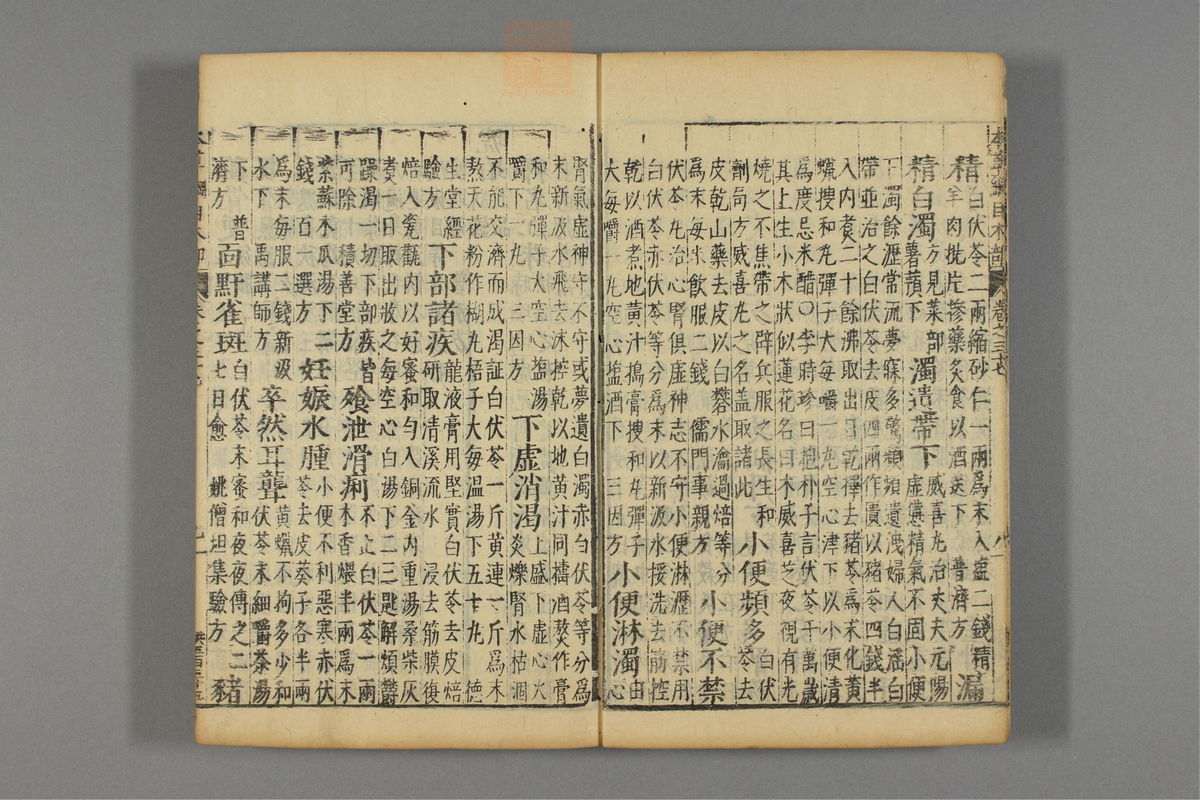 本草綱目木部 卷之三十七
精白伏苓二兩縮砂仁一兩爲末入塩二錢精
羊肉批片摻藥炙食以酒送下 普濟方 漏
精白濁方見菜部薯蕷下 濁遺帶下威喜丸治丈夫元陽虛憊精氣不固小便
下濁餘瀝常流夢寐多驚頻頻遺洩婦人白淫白
帶並治之白伏苓去皮四兩作匱以猪苓四錢半
入內煮二十餘沸取出日乾擇去猪苓爲末化黃
蠟搜和丸彈子大每嚼一丸空心津下以小便清
爲度忌米醋〇李時珍曰抱朴子言伏苓千萬歲
其上生小木狀似蓮花名曰木威喜芝夜視有光
燒之不焦帶之辟兵服之長生和
劑局方威喜丸之名盖取諸此 小便頻多白伏苓去
皮乾山藥去皮以白礬水瀹過焙等分
爲末每米飲服二錢 儒門事親方 小便不禁
伏苓丸治心腎俱虛神志不守小便淋瀝不禁用
白伏苓赤伏苓等分爲末以新汲水挼洗去筋控
乾以酒煮地黃汁搗膏搜和丸彈子
大每嚼一丸空心塩酒下 三因方 小便淋濁由心
腎氣虛神守不守或夢遺白濁赤白伏苓等分爲
末新汲水飛去沫控乾以地黃汁同擣酒熬作膏
和丸彈子大空心塩湯
嚼下一丸 三因方 下虛消渴上盛下虛心火炎爍腎水枯涸
不能交濟而成渴証白伏苓一斤黃連一斤爲末
熬天花粉作糊丸梧子大每溫湯下五十丸 德
生堂經
驗方 下部諸疾龍液膏用堅實白伏苓去皮焙研取清溪流水浸去筋膜復
焙入瓷罐內以好蜜和勻入銅釜內重湯桑柴灰
煮一日取出收之每空心白湯下二三匙解煩鬱
躁渴一切下部疾皆
可除 積善堂方 飱泄滑痢不止白伏苓一兩木香煨半兩爲末
紫蘇木瓜湯下二
錢 百一選方 妊娠水腫小便不利惡寒赤伏苓去皮葵子各半兩
爲末每服二錢新汲
水下 禹講師方 卒然耳聾黃蠟不拘多少和伏苓末細嚼茶湯
下 普
濟方 面䵟雀斑白伏苓末蜜和夜夜傅之二七日愈 姚僧坦集驗方 豬